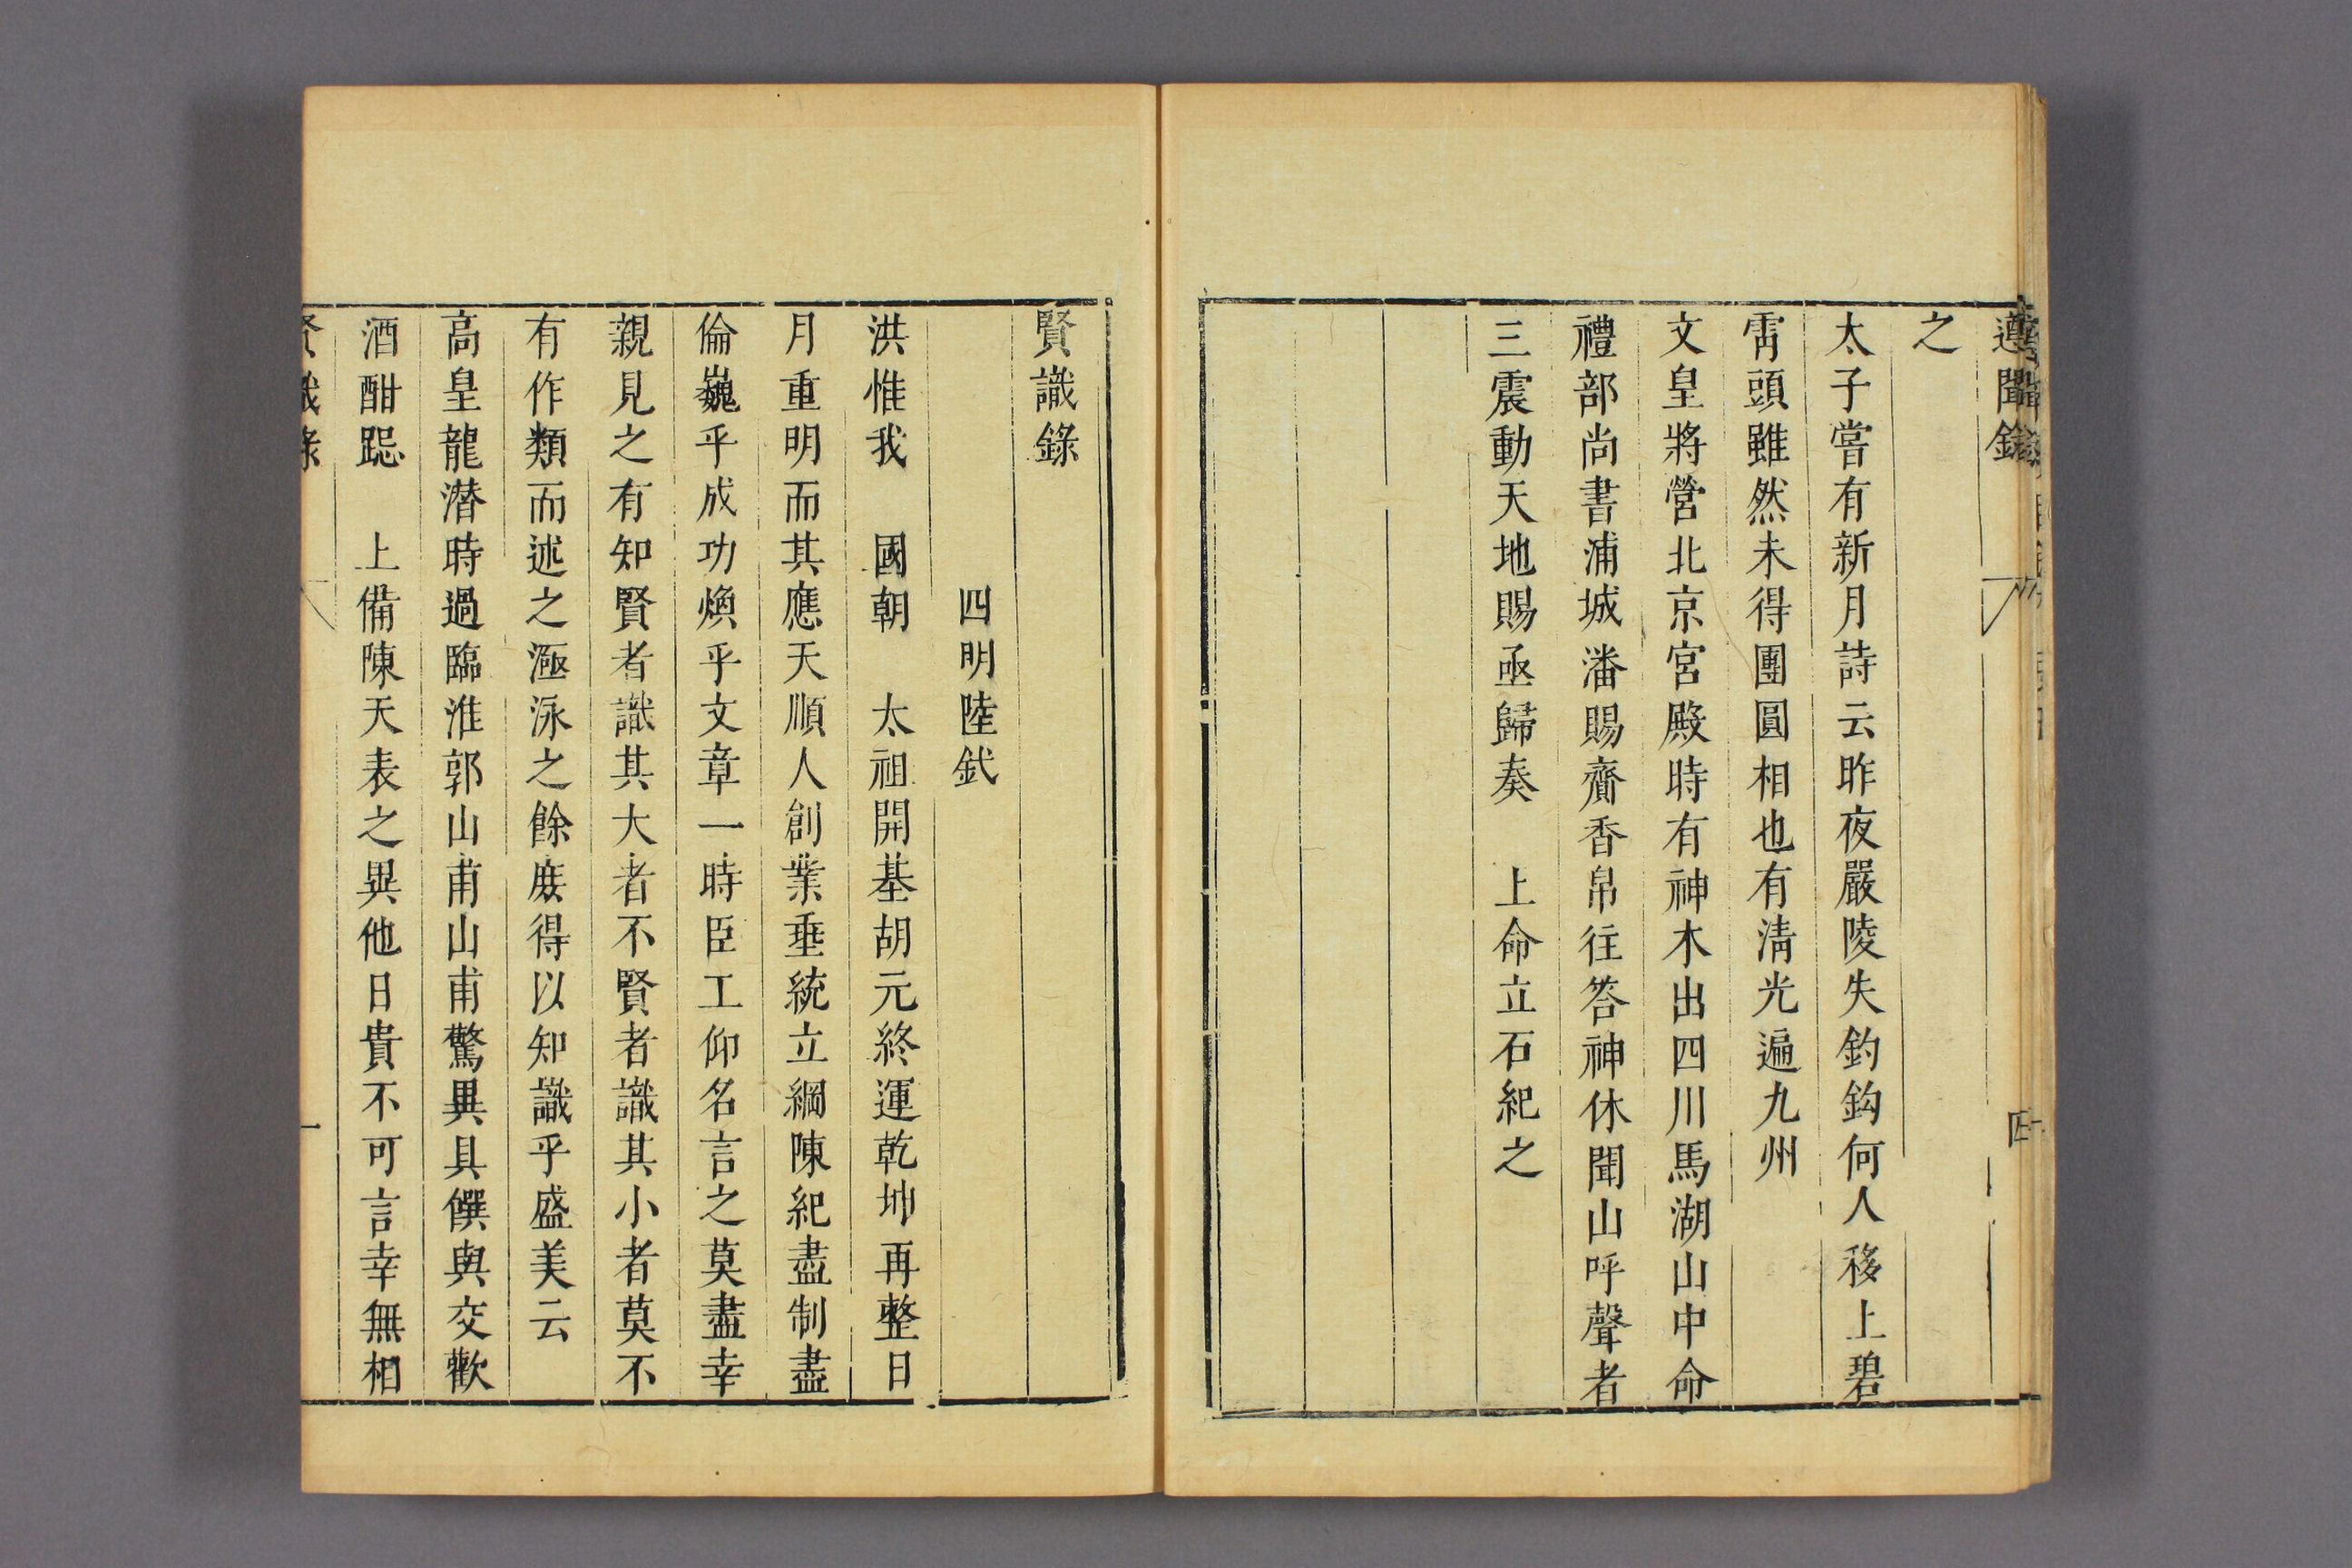 遵聞錄
四
之
太子嘗有新月詩云昨夜嚴陵失釣鈎何人移上碧
霄頭雖然未得團圓相也有淸光遍九州
文皇將營北京宮殿時有神木出四川馬湖山中命
禮部尚書浦城潘賜齎香帛往答神休聞山呼聲者
三震動天地賜亟歸奏　上命立石紀之
賢識錄
四明陸釴
洪惟我　國朝　太祖開基胡元終運乾坤再整日
月重明而其應天順人創業垂統立綱陳紀盡制盡
倫巍乎成功煥乎文章一時臣工仰名言之莫盡幸
親見之有知賢者識其大者不賢者識其小者莫不
有作類而述之涵泳之餘庻得以知識乎盛美云
高皇龍潜時過臨淮郭山甫山甫驚異具饌與交歡
酒酣跽　上備陳天表之異他日貴不可言幸無相
賢識錄
一